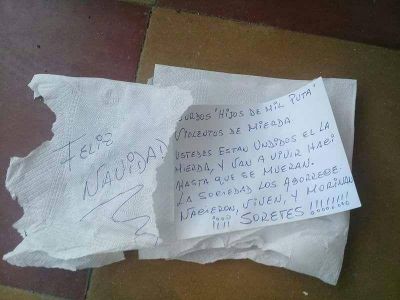 FELIZ
NAVIDAD
GORDOS "HIJOS DE MIL PUTA"
VIOLENTOS DE MIERDA.
USTEDES ESTAN UNDIDOS EL LA
MIERDA, Y VAN A VIVIR HACI
HASTA QUE SE MUERAN.
LA SOCIEDAD LOS ABORRECE.
NACIERON, VIVEN, Y MORIRAN
¡¡¡¡ SORETES !!!!!!!!